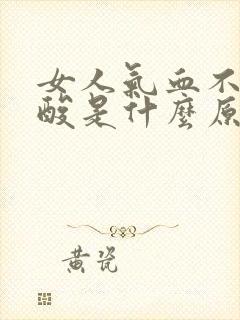 女人氣血不
酸是什麼原
黃瓷